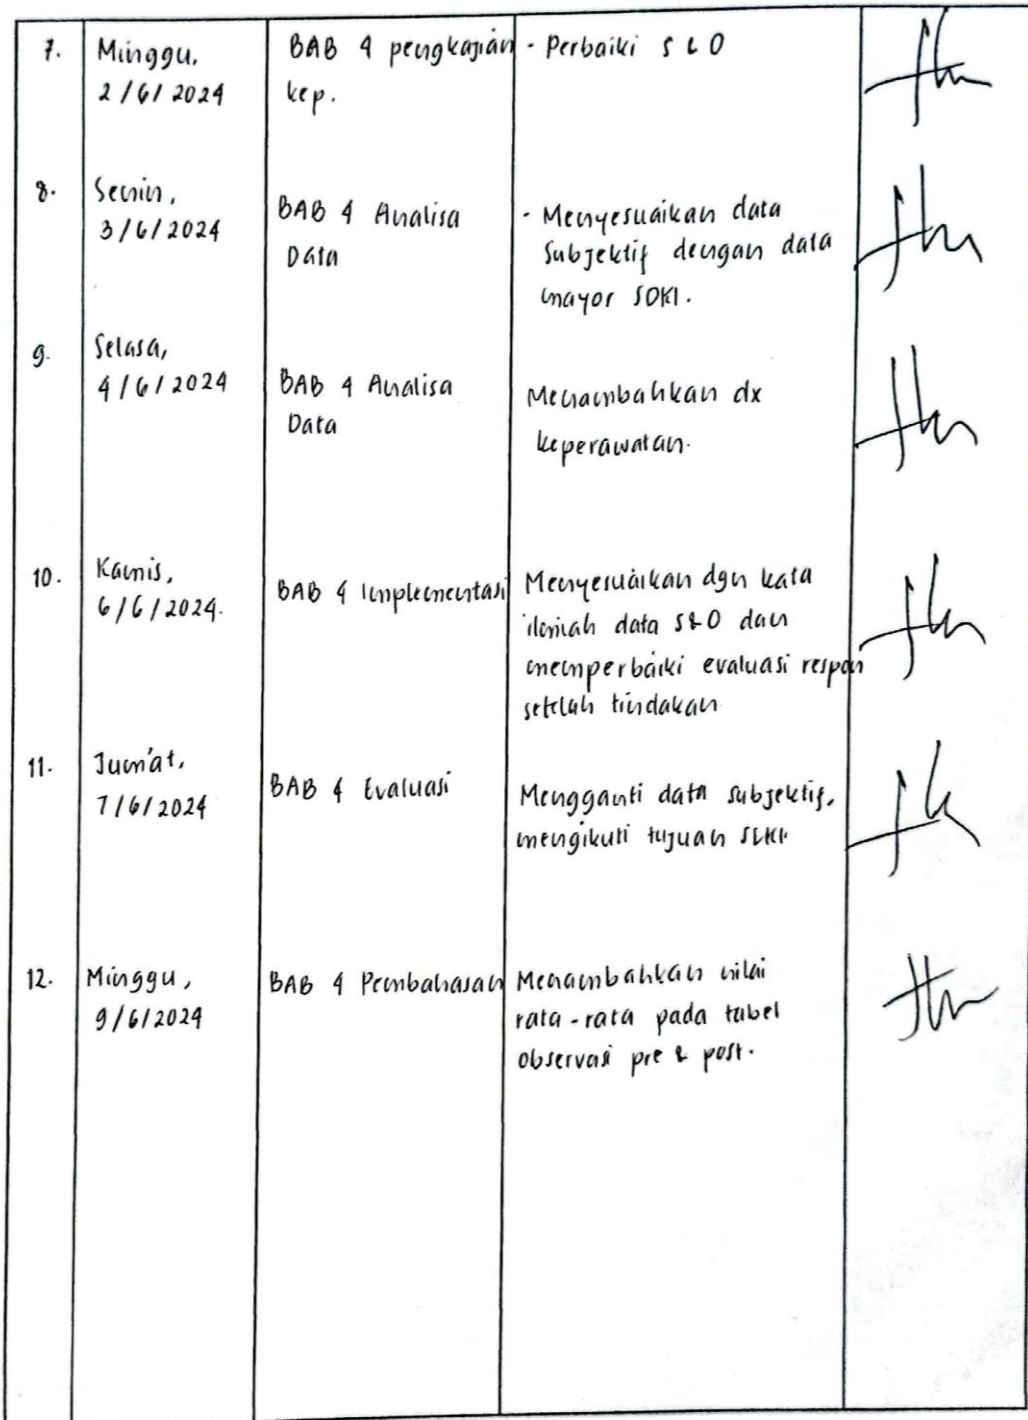 7.
Minggu,
2/6/2024
BAB 4 pengkajian
kep.
- Perbaiki S & O
8.
Senin,
3/6/2024
BAB 4 Analisa
Data
- Menyesuaikan data
Subjektif dengan data
mayor SDKI.
9.
Selasa,
4/6/2024
BAB 4 Analisa
Data
Menambahkan dx
keperawatan.
10.
Kamis,
6/6/2024.
BAB 4 Implementasi
Menyesuaikan dgn kata
ilmiah data S&O dan
memperbaiki evaluasi respon
setelah tindakan
11.
Jum'at,
7/6/2024
BAB 4 Evaluasi
Mengganti data subjektif,
mengikuti tujuan SLKI
12.
Minggu,
9/6/2024
BAB 4 Pembahasan
Menambahkan nilai
rata-rata pada tabel
observasi pre & post.